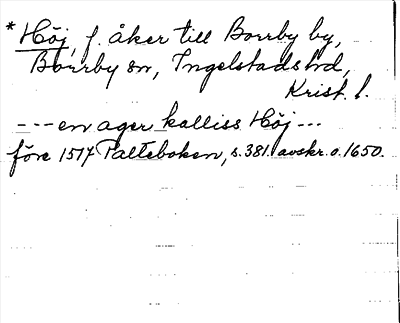 * Höj, f. åker till Borrby by,
Borrby sn, Ingelstads hd,
Krist. l.
---en ager kalliss Höj---
före 1514 Palteboken, s. 381. avskr. o. 1650.